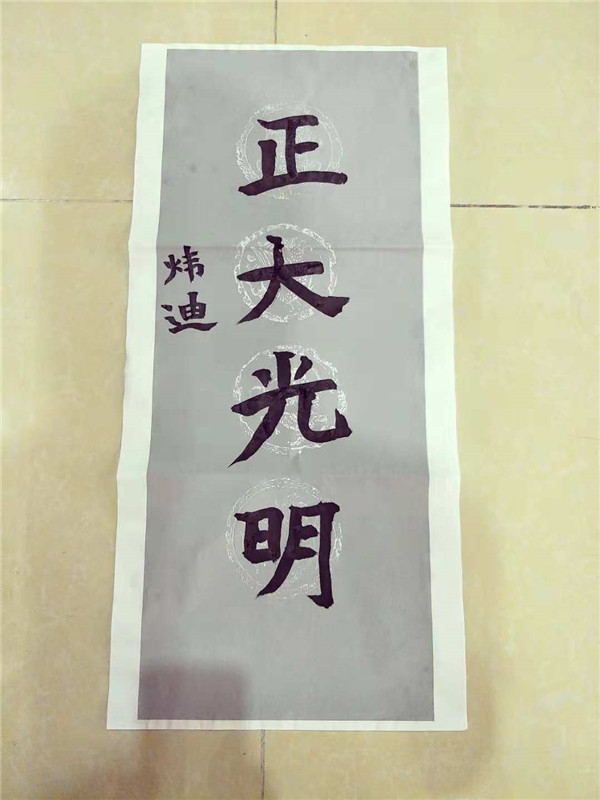 正大光明
炜迪